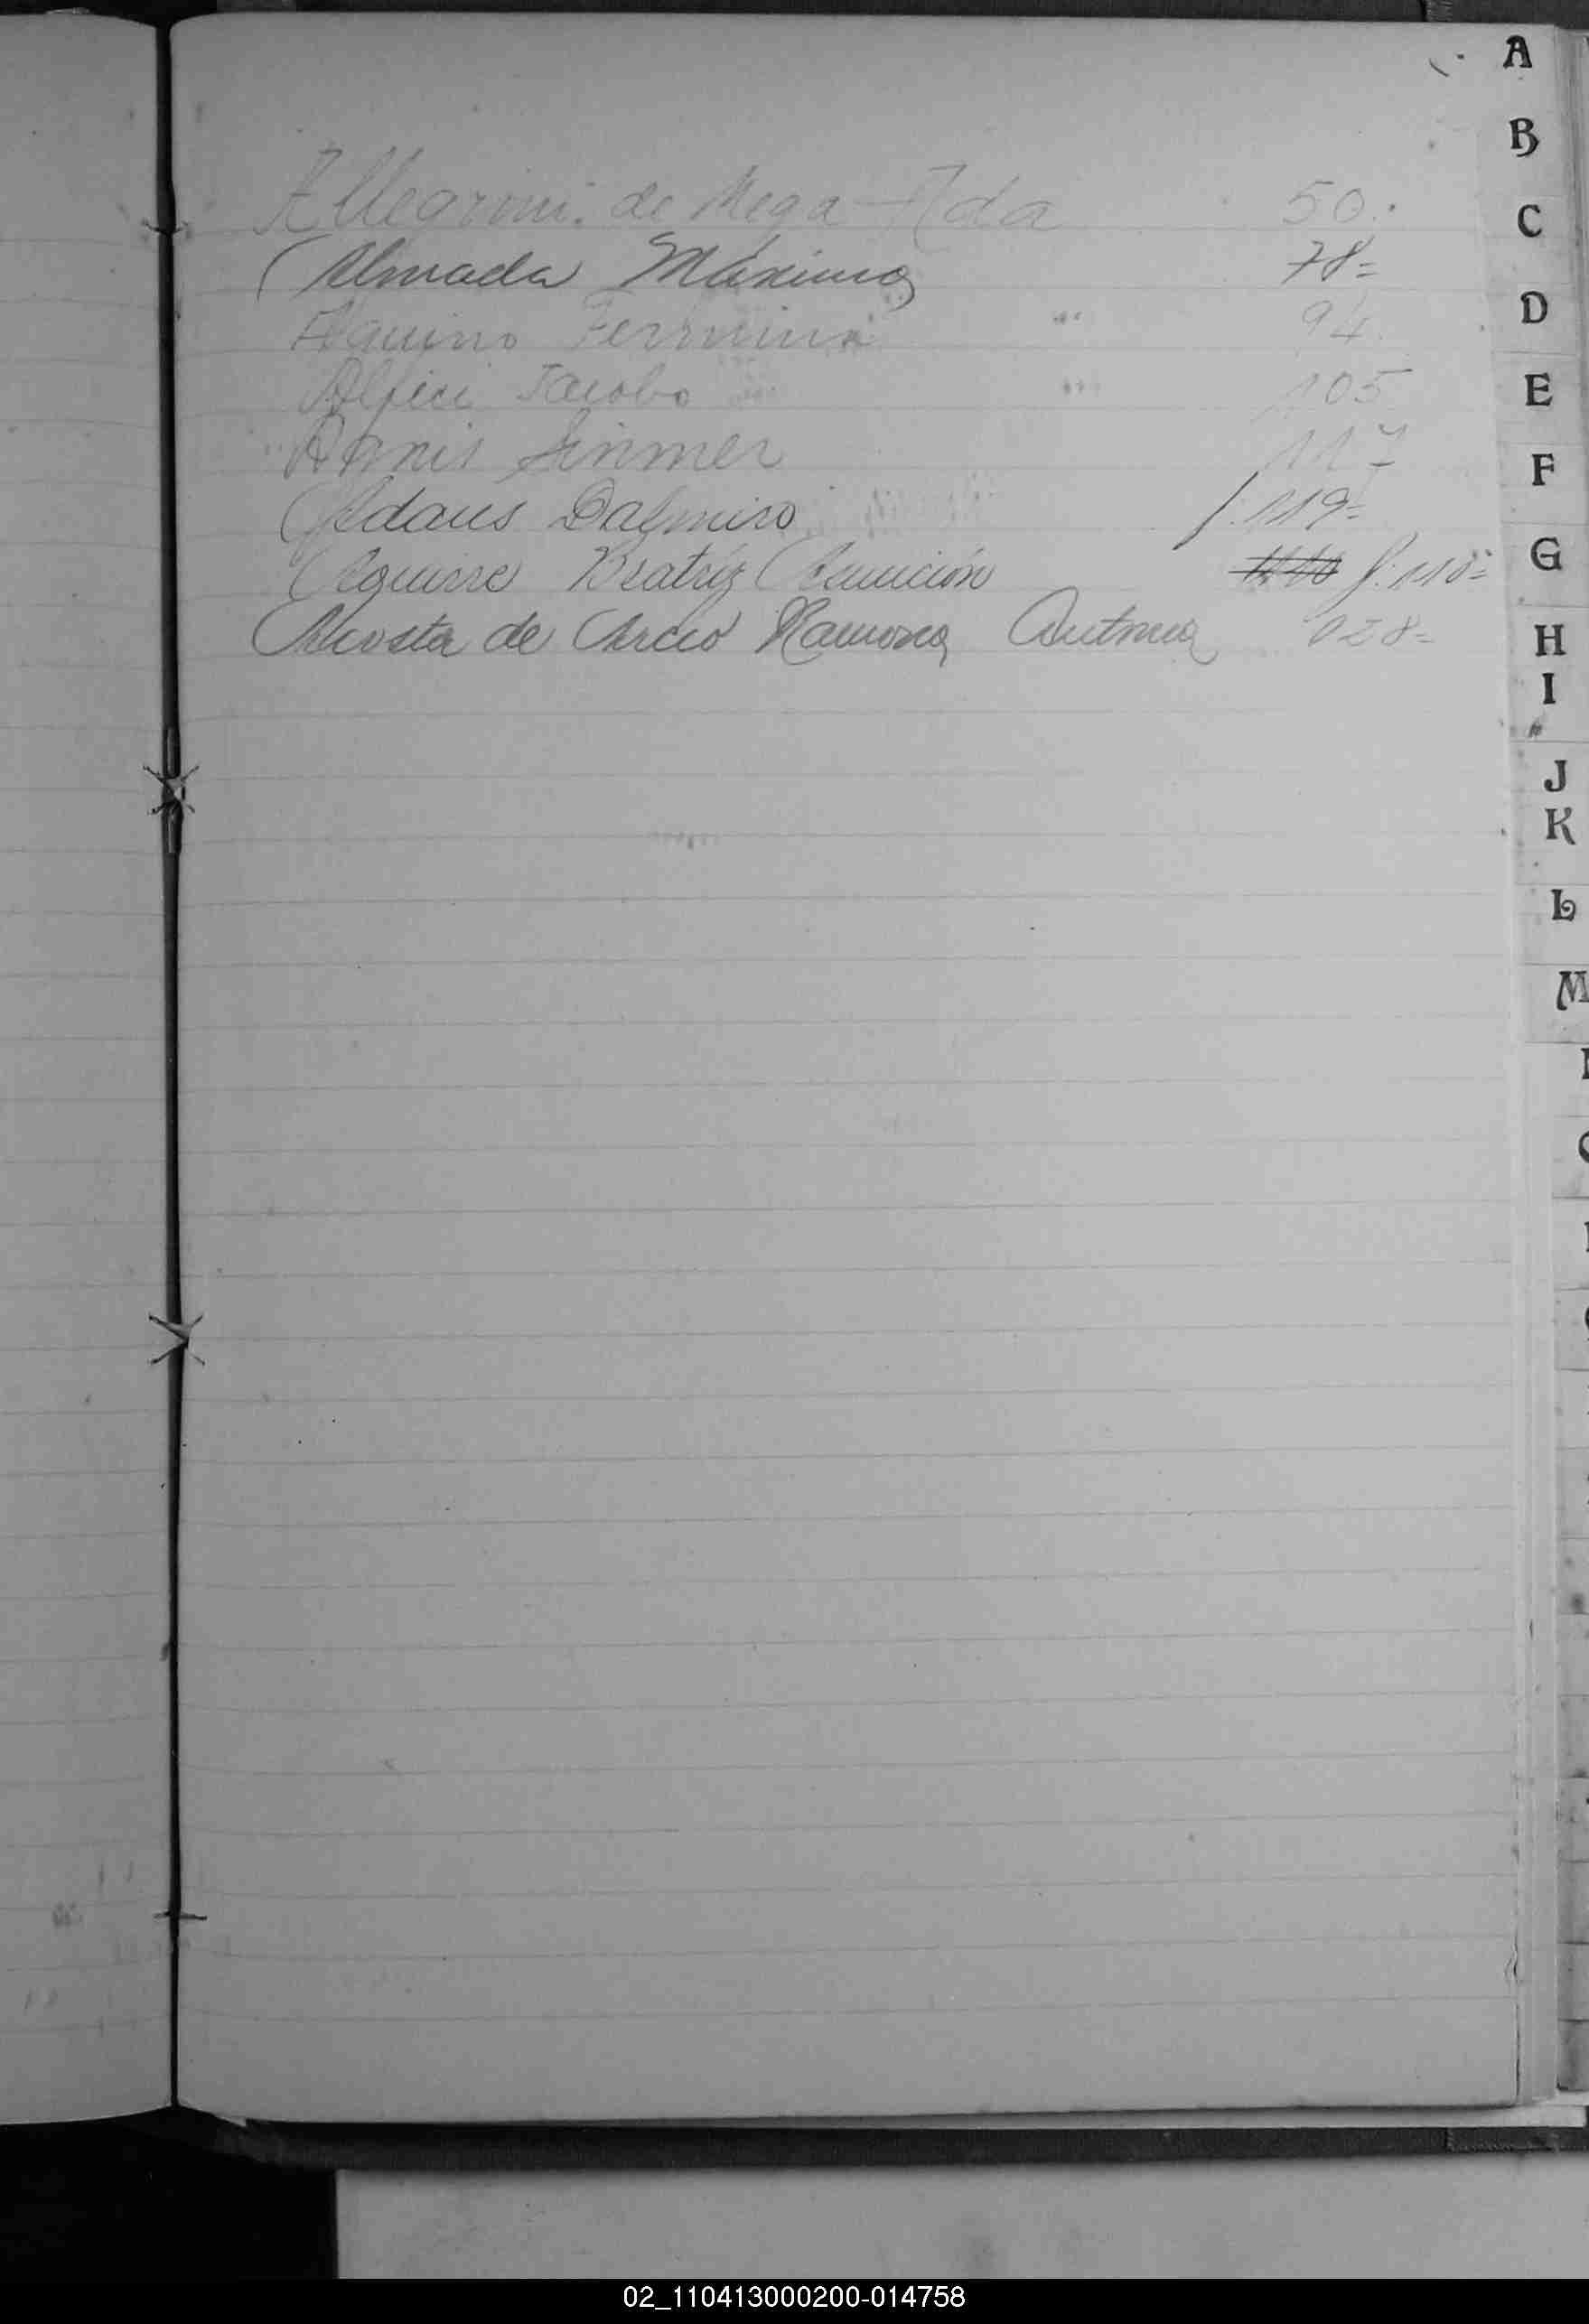 Allegroni de Mega Ada 50.
Almada Máximo 78=
Aquino Fermina 94.
Alfici Jacobo 105
Annis 117
Adaus Dalmiro f. 119=
Aguirre Beatríz Asunción f. 110=
Acosta de Arceo Ramona Antonia 128=
A
B
C
D
E
F
G
H
I
J
K
L
M
02_110413000200-014758